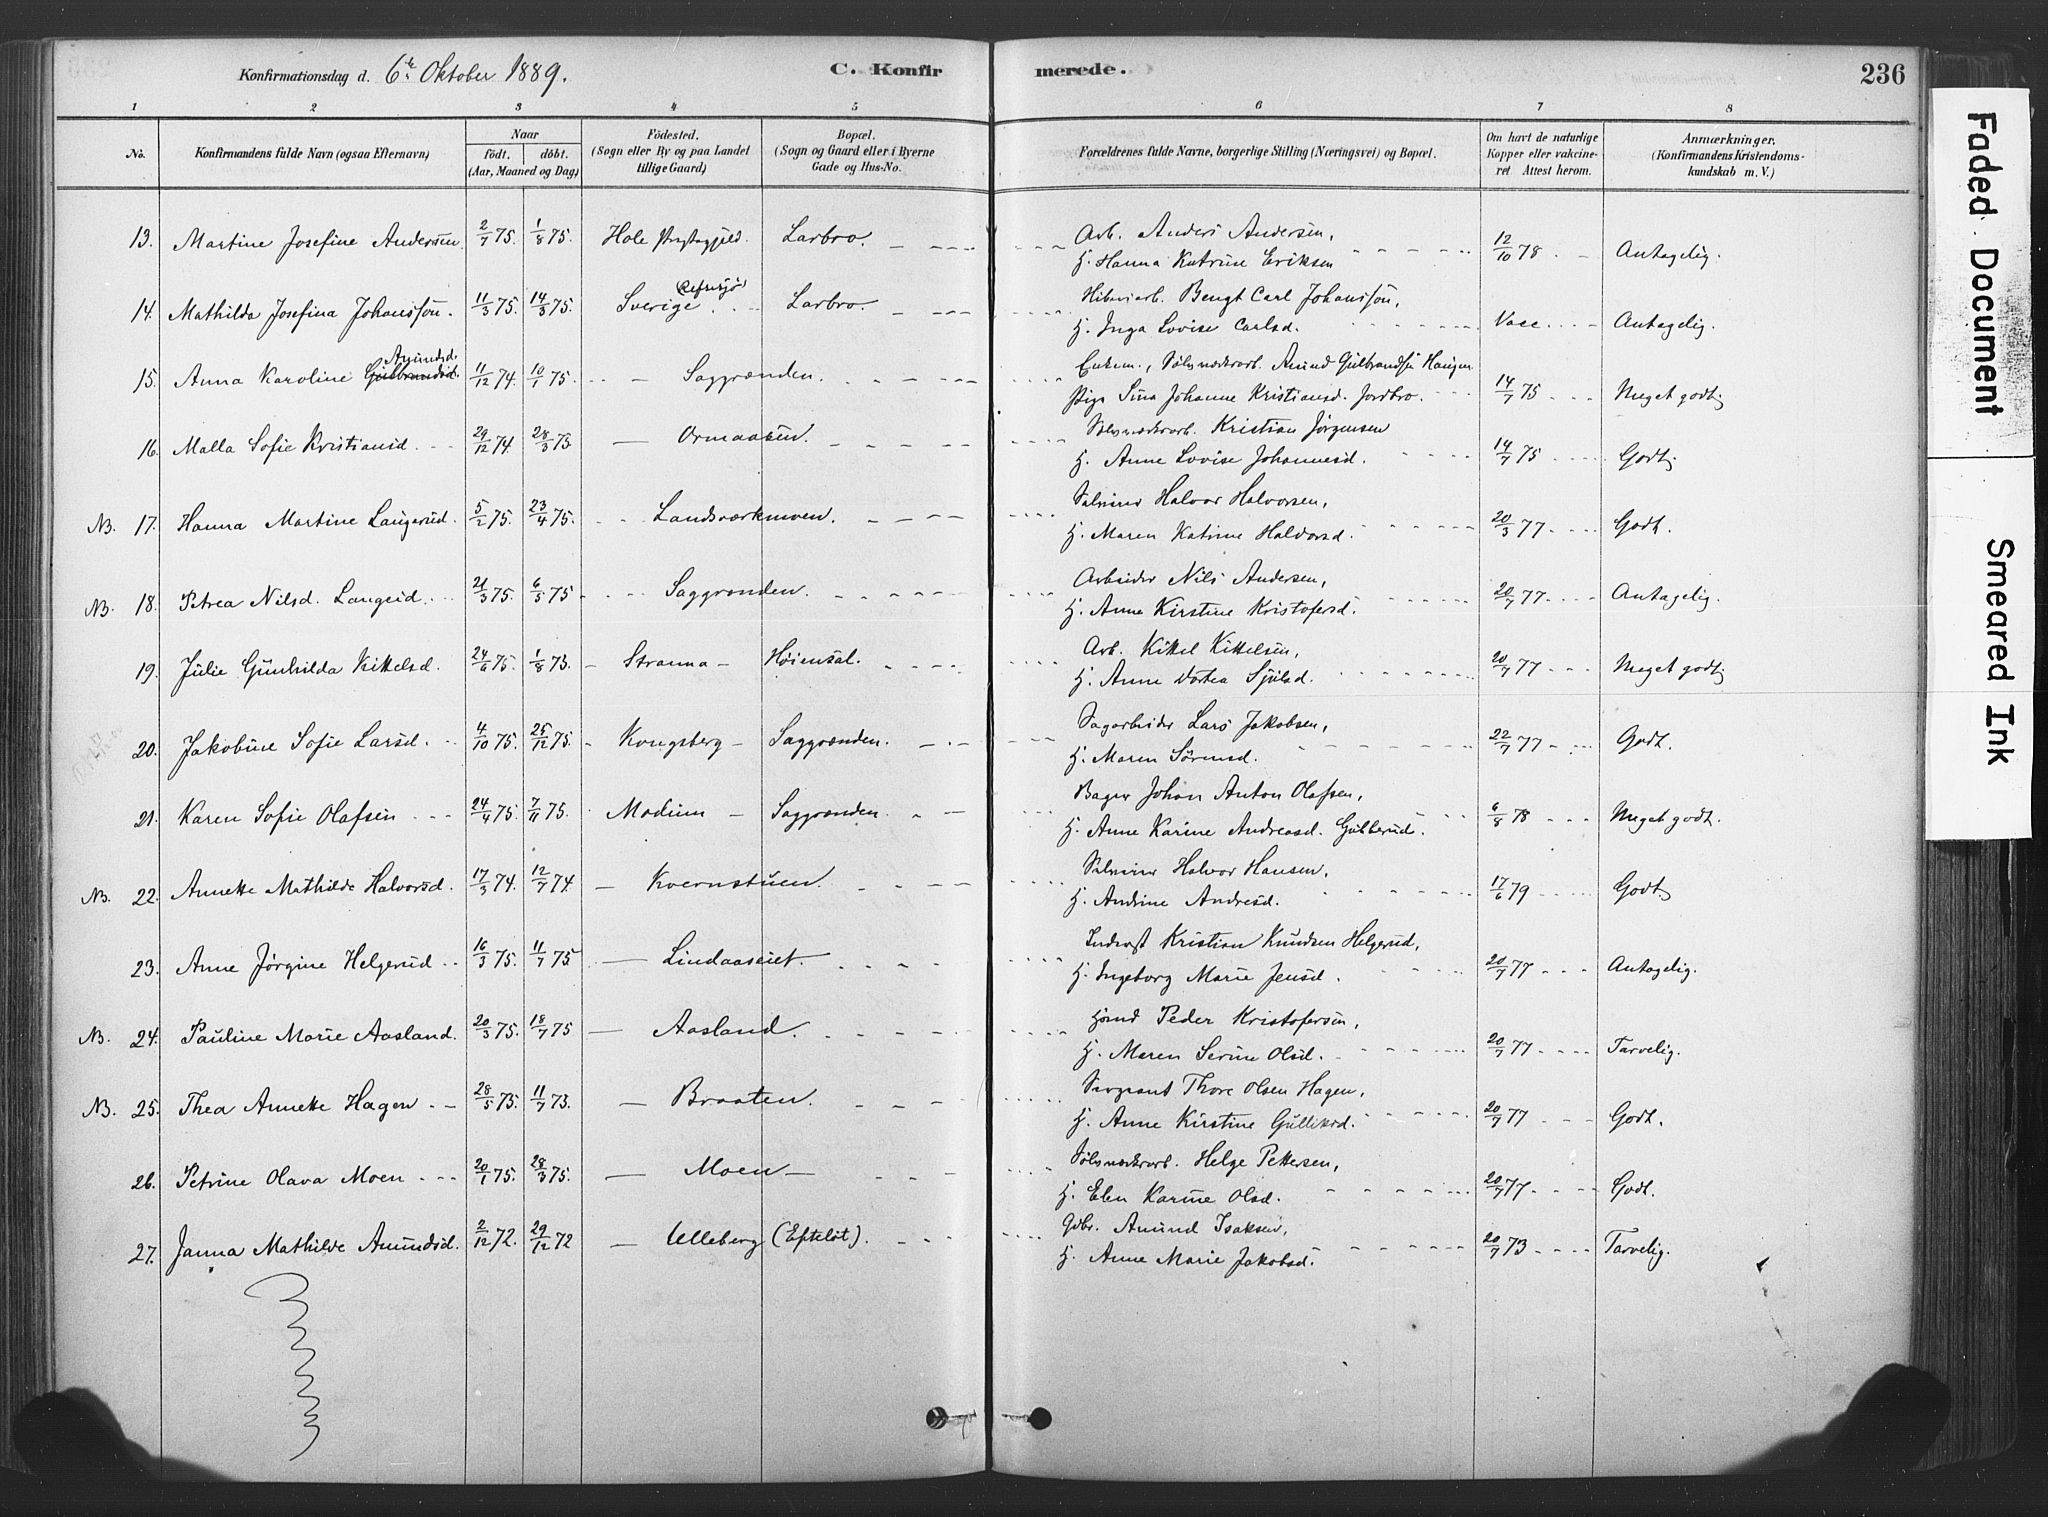 Konfirmationsdag d. 6te Oktober 1889. C. Konfirmerede. 236
1 2 3 4 5 6 7 8
No. Konfirmandens fulde Navn (ogsaa Efternavn) Naar født. døbt. (Aar, Maaned og Dag) Fødested. (Sogn eller By og paa Landet tillige Gaard) Bopæl. (Sogn og Gaard eller i Byerne Gade og Hus-No. Forældrenes fulde Navne, borgerlige Stilling (Næringsvei) og Bopæl. Om havt de naturlige Kopper eller vakcineret Attest herom. Anmærkninger. (Konfirmandens Kristendomskundskab m. V.)
13. Martine Josefine Andersen 2/7 75. 1/8 75. Hole Præstegjeld. Larbro. Arb. Anders Andersen,
H. Hanna Katrine Eriksen 12/10 78 Antagelig.
14. Mathilda Josefina Johansson. 11/3 75. 14/3 75. Sverige Larbro. Bengt Carl Johansson,
H. Inga Lovise Carlsd. Vacc. Antagelig.
15. Anna Karoline Gulbrandsd. Amundsd. 11/12 74. 10/1 75. Saggrenden. Enkem., Sølvværksarb. Amund Gulbrandsen Haugen
Pige Lina Johanne Kristiansd. Jordbro. 14/7 75 Meget godt
16. Malla Sofie Kristiansd 29/12 74. 28/3 75. Ormaasen. Sølvværksarb. Kristian Jørgensen
H. Anne Lovise Johannesd. 14/7 75 Godt
NB. 17. Hanna Martine Langerud. 5/2 75. 23/4 75. Landsværkmoen. Halvor Halvorsen,
H. Maren Katrine Halvorsd. 20/3 77 Godt.
NB. 18. Petrea Nilsd. Langerud. 21/3 75. 6/5 75 Saggrenden. Arbeider Nils Andersen,
H. Anne Kirstine Kristofersd. 20/7 77 Antagelig.
19. Julie Gunhilda Kittelsd. 24/6 75. 1/8 75. Stranna Høiensal. Arb. Kittel Kittelsen,
H. Anne Dortea Sjulsd. 20/7 77 Meget godt
20. Jakobine Sofie Larsd. 4/10 75. 25/12 75. Kongsberg Saggrenden. Sagarbeider Lars Jakobsen,
H. Maren Sørensd. 22/7 77 Godt.
21. Karen Sofie Olafsen 24/4 75. 7/11 75. Modum Saggrenden. Bager Johan Anton Olafsen,
H. Anne Karine Andreasd. Gulberud. 6/8 78 Meget godt.
NB. 22. Annette Mathilde Halvorsd. 17/3 74. 12/7 74. Kvernstuen. Halvor Hansen,
H. Andrine Andresd. 17/6 79 Godt
23. Anne Jørgine Helgerud 16/3 75. 11/7 75 Lindaaseiet. Inderst Kristian Knudsen Helgerud,
H. Ingeborg Marie Jensd. 20/7 77 Antagelig.
NB. 24. Pauline Marie Aasland. 20/3 75. 18/7 75 Aasland. Peder Kristofersen,
H. Maren Serine Olsd. 20/7 77 Tarvelig.
NB. 25. Thea Annette Hagen 28/5 75. 11/7 75. Braaten. Sergeant Thore Olsen Hagen,
H. Anne Kirstine Gulliksd. 20/7 77 Godt.
26. Petrine Olava Moen 20/1 75. 28/3 75. Moen Sølvværksarb. Helge Pettersen,
H. Elen Karine Olsd. 20/7 77 Godt.
27. Janna Mathilde Amundsd. 2/12 72. 29/12 72 Ulleberg (Efteløt). Gdbr. Amund Isaksen,
H. Anne Marie Jakobsd. 20/7 73 Tarvelig.
Faded Document
Smeared Ink